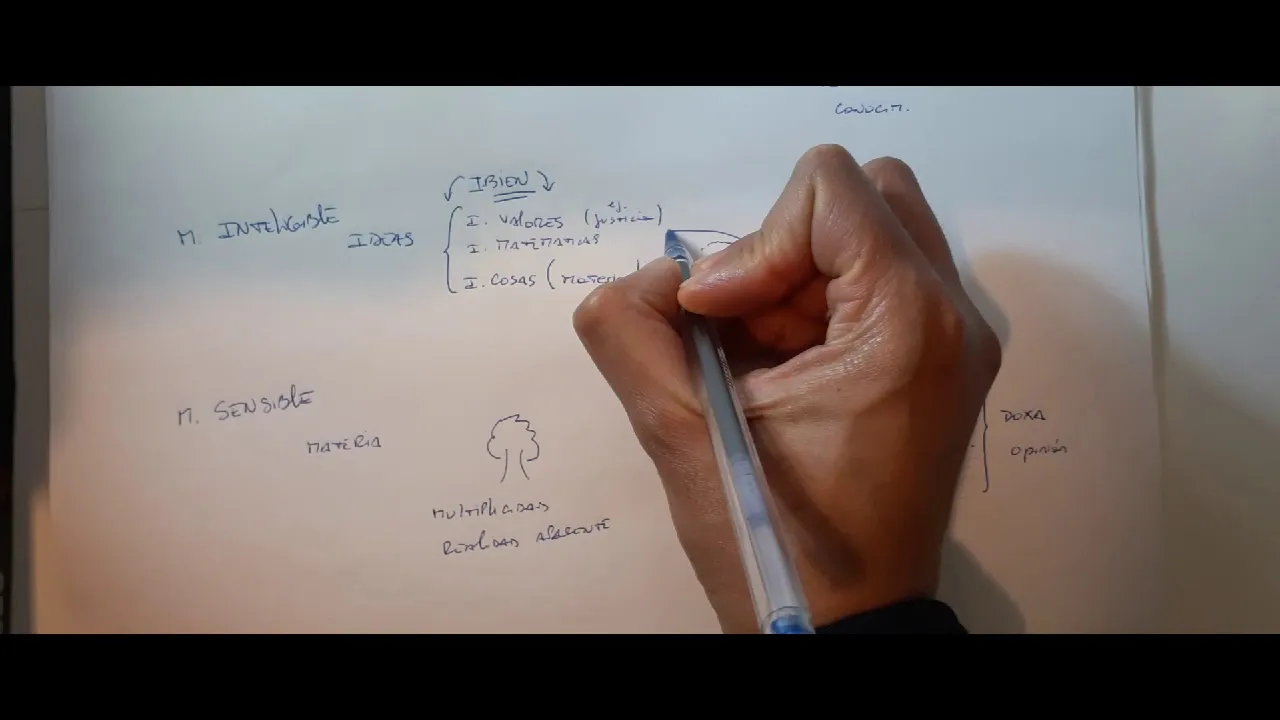 CONOCIM.
IBIEN
M. INTELIGIBLE
IDEAS
I. VALORES (ej. justicia)
I. MATEMATICAS
I. COSAS (Materia
M. SENSIBLE
MATERIA
MULTIPLICIDAD
REALIDAD APARENTE
DOXA
opinión